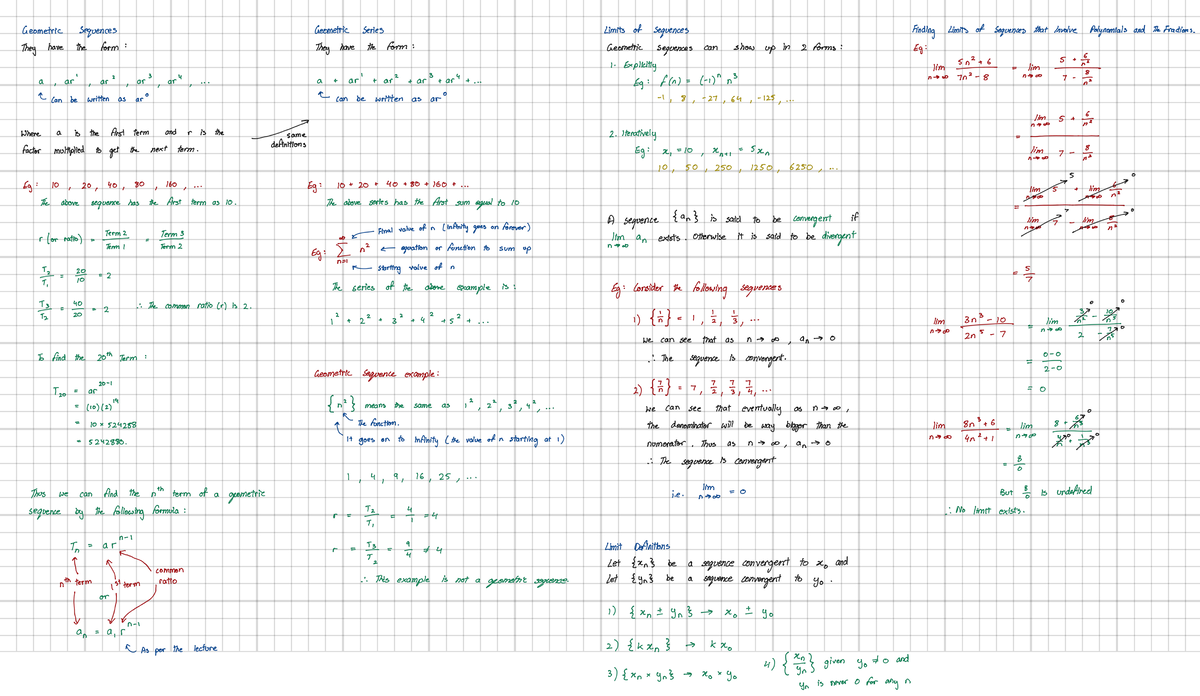 Geometric Sequences
They have the form :
a , ar¹ , ar² , ar³ , ar⁴ , ...
can be written as ar⁰
Where a is the first term and r is the
factor multiplied to get the next term.
Eg : 10 , 20 , 40 , 80 , 160 , ...
The above sequence has the first term as 10.
r (or ratio) = Term 2 / Term 1 = Term 3 / Term 2
T₂ / T₁ = 20 / 10 = 2
T₃ / T₂ = 40 / 20 = 2 ∴ The common ratio (r) is 2.
To find the 20th Term :
T₂₀ = ar²⁰⁻¹
= (10)(2)¹⁹
= 10 × 524288
= 5242880.
Thus we can find the nth term of a geometric
sequence by the following formula :
Tₙ = arⁿ⁻¹
nth term
1st term
common
ratio
or
aₙ = a₁rⁿ⁻¹
As per the lecture
Geometric Series
They have the form :
a + ar¹ + ar² + ar³ + ar⁴ + ...
can be written as ar⁰
same
definitions
Eg : 10 + 20 + 40 + 80 + 160 + ...
The above series has the first sum equal to 10
Final value of n (infinity goes on forever)
Eg : ∞ Σ n=1 n² ← equation or function to sum up
starting value of n
The series of the above example is :
1² + 2² + 3² + 4² + 5² + ...
Geometric Sequence example :
{n²} means the same as 1² , 2² , 3² , 4² , ...
The function.
It goes on to infinity (the value of n starting at 1)
1 , 4 , 9 , 16 , 25 , ...
r = T₂ / T₁ = 4 / 1 = 4
r = T₃ / T₂ = 9 / 4 ≠ 4
∴ This example is not a geometric sequence.
Limits of Sequences
Geometric sequences can show up in 2 forms :
1. Explicitly
Eg : f(n) = (-1)ⁿ n³
-1 , 8 , -27 , 64 , -125 , ...
2. Iteratively
Eg : x₁ = 10 , xₙ₊₁ = 5xₙ
10 , 50 , 250 , 1250 , 6250 , ...
A sequence {aₙ} is said to be convergent if
lim n→∞ aₙ exists. Otherwise it is said to be divergent
Eg : Consider the following sequences
1) {1/n} = 1 , 1/2 , 1/3 , ...
we can see that as n → ∞ , aₙ → 0
∴ The sequence is convergent.
2) {7/n} = 7 , 7/2 , 7/3 , 7/4 , ...
we can see that eventually as n → ∞ ,
the denominator will be way bigger than the
numerator . Thus as n → ∞ , aₙ → 0
∴ The sequence is convergent
i.e. lim n→∞ = 0
Limit Definitions
Let {xₙ} be a sequence convergent to x₀ and
Let {yₙ} be a sequence convergent to y₀ .
1) {xₙ ± yₙ} → x₀ ± y₀
2) {kxₙ} → kx₀
3) {xₙ × yₙ} → x₀ × y₀
4) {xₙ / yₙ} given y₀ ≠ 0 and
yₙ is never 0 for any n
Finding Limits of Sequences that involve Polynomials and the Fractions.
Eg :
lim n→∞ 5n² + 6 / 7n² - 8 = lim n→∞ 5 + 6/n² / 7 - 8/n²
= lim n→∞ 5 + 6/n² / lim n→∞ 7 - 8/n²
= lim n→∞ 5 + lim n→∞ 6/n² / lim n→∞ 7 - lim n→∞ 8/n²
= 5/7
lim n→∞ 3n³ - 10 / 2n⁵ - 7 = lim n→∞ 3/n² - 10/n⁵ / 2 - 7/n⁵
= 0-0 / 2-0
= 0
lim n→∞ 8n³ + 6 / 4n² + 1 = lim n→∞ 8 + 6/n³ / 4/n + 1/n³
= 8/0
But 8/0 is undefined
∴ No limit exists.